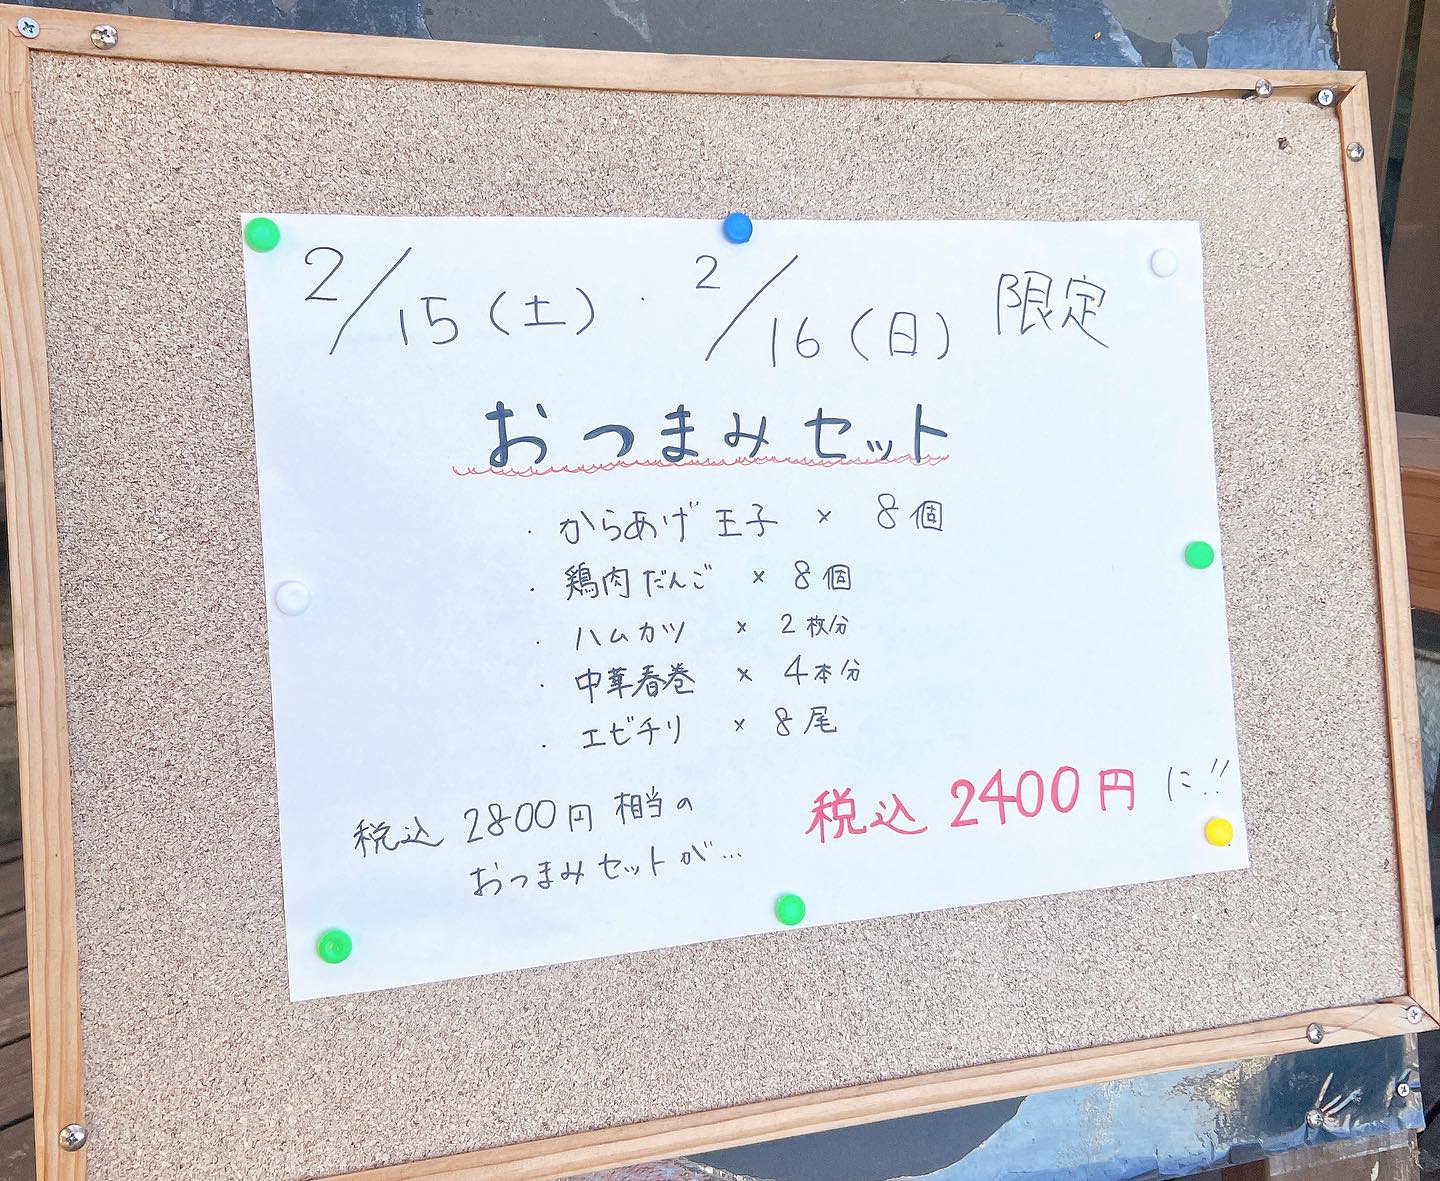 2/15(土)・2/16(日) 限定
おつまみセット
・からあげ王子 × 8個
・鶏肉だんご × 8個
・ハムカツ × 2枚分
・中華春巻 × 4本分
・エビチリ × 8尾
税込 2800円 相当の
おつまみセットが…
税込 2400円 に!!